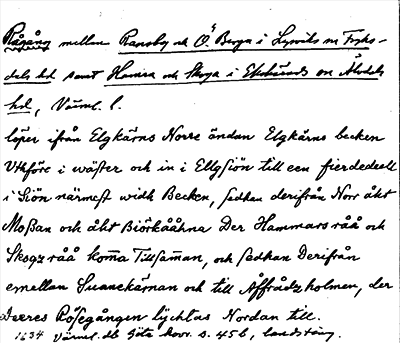 Rågång mellan Ransby och Ö. Berga i Lysviks sn Fryks-
dals hd samt Hamra och Skoga i Ekshärads sn Älvdals
hd, Värml. l.
löper ifrån Elgkärns Norre ändan Elgkärns becken
Uthföre i wäster och in i Ellgsiön till een fierdedeell
i Siön närmest widh Becken, sedhan derifrån Norr åht
Moßan och åht Biörkaåhna Der Hammars råå och
Skogz råå kom̄a Tillsam̄an, och sedhan Derifrån
emellan Suanekärnan och till Åffrådzholmen, der
Deeres Rösegången lychtas Nordan till.
1634 Värml. db Göta Hovr. s. 456, landsting.